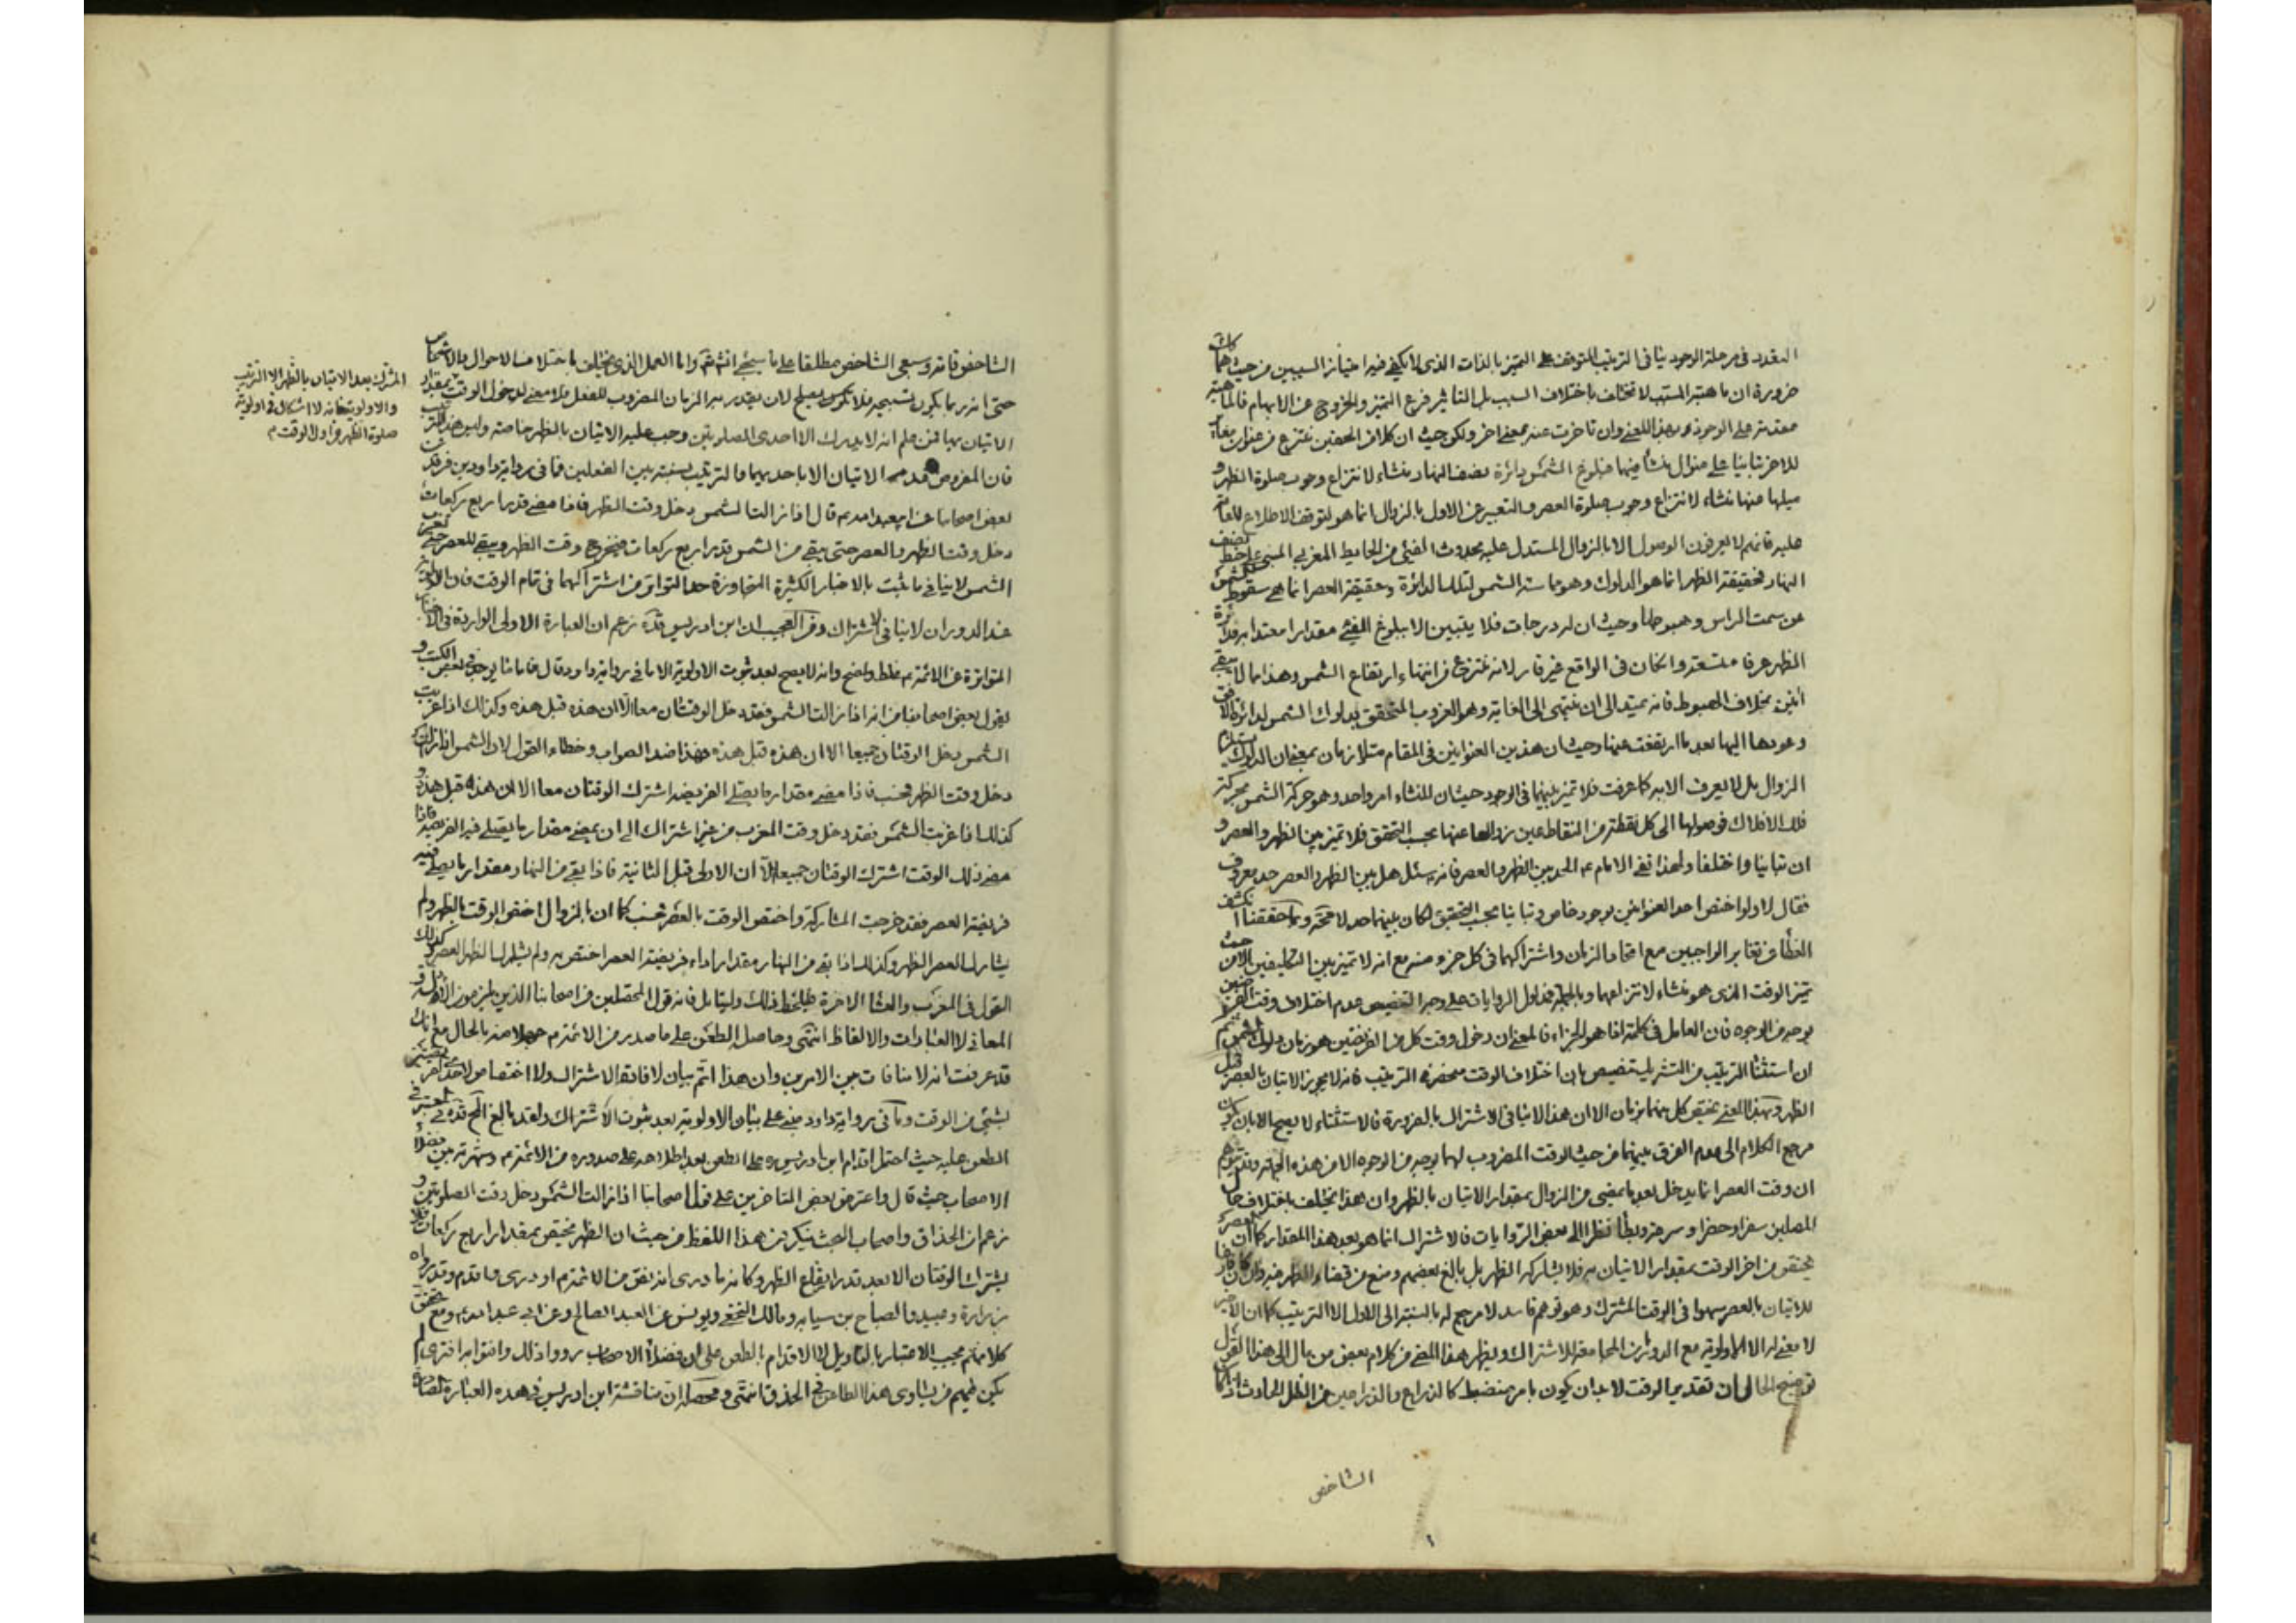 التعدد فى مرحلة الوجود ينافى الترتيب المتوقف على التميز بالذات الذى لا يكفى فيه امتياز السببين من حيث هما كانت
ضرورة ان ماهية المسبب لا تختلف باختلاف السبب بل التاثير فرع التميز والخروج عن الابهام فالماهية
مقدمة على الوجود بهذا المعنى وان تاخرت عنه بمعنى اخر ولكن حيث ان كلا من الحصتين تنتزع من عنوان
للاخر تباينا على منوال منشأ فبلوغ الشمس دائرة نصف النهار منشاء لانتزاع وجوب صلوة الظهر و
ميلها عنها منشاء لانتزاع وجوب صلوة العصر والتعبير عن الاول بالزوال انما هو لتوقف الاطلاع
عليه فانهم لا يعرفون الوصول الا بالزوال المستدل عليه بحدوث الفيء من الحايط المغربى المبنى على خط نصف
النهار فحقيقة الظهر انما هو الدلوك وهو مماسة الشمس لتلك الدائرة وحقيقة العصر انما هى سقوط الشمس
عن سمت الراس وهبوطها وحيث ان له درجات فلا يتبين الا ببلوغ الفيء مقدارا معتدا به
الظهر عرفا متسعة وان كان فى الواقع غير قار لانه منتزع من انتهاء ارتفاع الشمس وهذا مما لا يبقى
آنين بخلاف الهبوط فانه يمتد الى ان ينتهى الى الغاية وهو الغروب المتحقق بدلوك الشمس لدائرة الافق
وعودها اليها بعد ما ارتفعت عنها وحيث ان هذين العنوانين فى المقام متلازمان بمعنى ان الدلوك يستلزم
الزوال بل لا يعرف الا به كما عرفت فلا تميز بينهما فى الوجود حيث ان المنشاء امر واحد وهو حركة الشمس بحركة
فلك الافلاك فوصولها الى كل نقطة من النقاط عين زوالها عنها بحسب التحقق فلا تميز بين الظهر والعصر و
ان تباينا واختلفا ولهذا نفى الامام ع الحد بين الظهر والعصر فانه سئل هل بين الظهر والعصر حد معروف
فقال لا ولو اختص احد العنوانين بوجود خاص وتباينا بحسب التحقق لكان بينهما حد لا محة ومما حققنا انكشف
الغطاء عن تغاير الواجبين مع اتحاد الزمان واشتراكهما فى كل جزء منه مع انه لا تميز بين التكليفين الا من حيث
تميز الوقت الذى هو منشاء لانتزاعهما وبالجملة فمدلول الروايات على وجه التنصيص عدم اختلاف وقت الفرضين
بوجه من الوجوه فان العامل فى كلمة اذا هو الجزاء فالمعنى ان دخول وقت كل من الفرضين هو زمان دلوك الشمس
ان استثناء الترتيب من التشريك تنصيص بان اختلاف الوقت منحصر فى الترتيب فانه لا يجوز الاتيان بالعصر قبل
الظهر وبهذا المعنى يختص كل منهما بزمان الا ان هذا لا ينافى الاشتراك بالضرورة فالاستثناء لا يصح الا بان يكون
مرجع الكلام الى عدم الفرق بينهما من حيث الوقت المضروب لهما بوجه من الوجوه الا من هذه الجهة وقد يتوهم
ان وقت العصر انما يدخل بعد ما يمضى من الزوال بمقدار الاتيان بالظهر وان هذا يختلف باختلاف حال
المصلين سفرا وحضرا وسرعة وبطأ نظرا الى بعض الروايات فالاشتراك انما هو بعد هذا المقدار كما ان العصر
يختص من اخر الوقت بمقدار الاتيان به فلا يشاركه الظهر بل بالغ بعضهم ومنع من قضاء الظهر فيه وان كان
للاتيان بالعصر سهوا فى الوقت المشترك وهو توهم فاسد لا مرجع له بالنسبة الى الاول الا الترتيب كما ان الاخير
لا معنى له الا الاولوية مع الدوران المجامعة للاشتراك ويظهر هذا المعنى من كلام بعض من مال الى هذا القول
توضيح الحال ان تقدير الوقت لا بد ان يكون بامر منضبط كالذراع والذراعين من الظل الحادث
الشاخص
الشاخص قامة وسبعى الشاخص مطلقا على ما سيجئ انش تم واما العمل الذى يختلف باختلاف الاحوال والاشخاص
حتى انه ربما يكون تسبيحة فلا يكون يصلح لان يقدر به الزمان المضروب للفعل فلا معنى لدخول الوقت بمقدار
الاتيان بها فمن علم انه لا يدرك الا احدى الصلوتين وجب عليه الاتيان بالظهر خاصة وليس هذا الترتيب
فان المفروض عدم الاتيان الا باحديهما والترتيب نسبة بين الفعلين فما فى رواية داود بن فرقد عن
بعض اصحابنا عن ابيعبدالله ع قال اذا زالت الشمس دخل وقت الظهر فاذا مضى قدر اربع ركعات
دخل وقت الظهر والعصر حتى يبقى من الشمس قدر اربع ركعات فيخرج وقت الظهر ويبقى للعصر حتى تغرب
الشمس لا ينافى ما ثبت بالاخبار الكثيرة المتجاوزة حد التواتر من اشتراكهما فى تمام الوقت فان الاولوية
عند الدوران لا ينافى الاشتراك ومن العجيب ان ابن ادريس قده زعم ان العبارة الاولى الواردة فى الاخبار
المتواترة عن الائمة ع غلط واضح وانه لا يصح بعد ثبوت الاولوية الا ما فى رواية داود قال فاما ما يوجد فى بعض الكتب و
يقول بعض اصحابنا من انه اذا زالت الشمس فقد دخل الوقتان معا الا ان هذه قبل هذه وكذلك اذا غربت
الشمس دخل الوقتان جميعا الا ان هذه قبل هذه فهذا ضد الصواب وخطاء القول لان الشمس اذا زالت
دخل وقت الظهر فحسب فاذا مضى مقدار ما يصلى الفريضة اشترك الوقتان معا الا ان هذه قبل هذه و
كذلك اذا غربت الشمس فقد دخل وقت المغرب من غير اشتراك الى ان يمضى مقدار ما يصلى فيه الفريضة فاذا
مضى ذلك الوقت اشترك الوقتان جميعا الا ان الاولى قبل الثانية فاذا بقى من النهار مقدار ما يصلى فيه
فريضة العصر فقد خرجت المشاركة واختص الوقت بالعصر فحسب كما ان بالزوال اختص الوقت بالظهر ولم
يشارك العصر الظهر وكذلك اذا بقى من النهار مقدار اداء فريضة العصر اختص به ولم يشارك الظهر العصر وكذلك
القول فى المغرب والعشا الاخرة فليلحظ ذلك وليتامل فانه قول المحصلين من اصحابنا الذين يلزمون الادلة و
المعانى لا العبارات والالفاظ انتهى وحاصله الطعن على ما صدر من الائمة ع جهلا منه بالحال مع انك
قد عرفت انه لا منافات بين الامرين وان هذا اتم بيان لافادة الاشتراك ولا اختصاص لاحدى الفريضتين
بشئ من الوقت وما فى رواية داود مبنى على بيان الاولوية بعد ثبوت الاشتراك ولقد بالغ المحقق قده فى المعتبر فى
الطعن عليه حيث احتمل اقدام ابن ادريس ره على الطعن بعد اطلاعه على صدوره من الائمة ع وشهرته بين فضلاء
الاصحاب حيث قال واعترض بعض المتاخرين على قول اصحابنا اذا زالت الشمس دخل وقت الصلوتين و
زعم ان الحذاق واصحاب البحث ينكرون هذا اللفظ من حيث ان الظهر يختص بمقدار اربع ركعات فلا
يشترك الوقتان الا بعد قدر ايقاع الظهر وكانه ما درى انه نص من الائمة ع او درى واقدم وقد رواه
زرارة وعبيد والصباح بن سيابة ومالك الجهنى ويونس عن العبد الصالح وعن ابى عبدالله ع ومع تحقق
كلامهم يجب الاعتبار بالتاويل لا الاقدام بالطعن على ان فضلاء الاصحاب رووا ذلك وافتوا به افترى لم
يكن فيهم من يساوى هذا الطاعن فى الحذق انتهى ومحصله ان مناقشة ابن ادريس فى هذه العبارة
المشترك بعد الاتيان بالظهر الا الترتيب
والاولوية فانه لا اشكال فى اولوية
صلوة الظهر من اول الوقت م